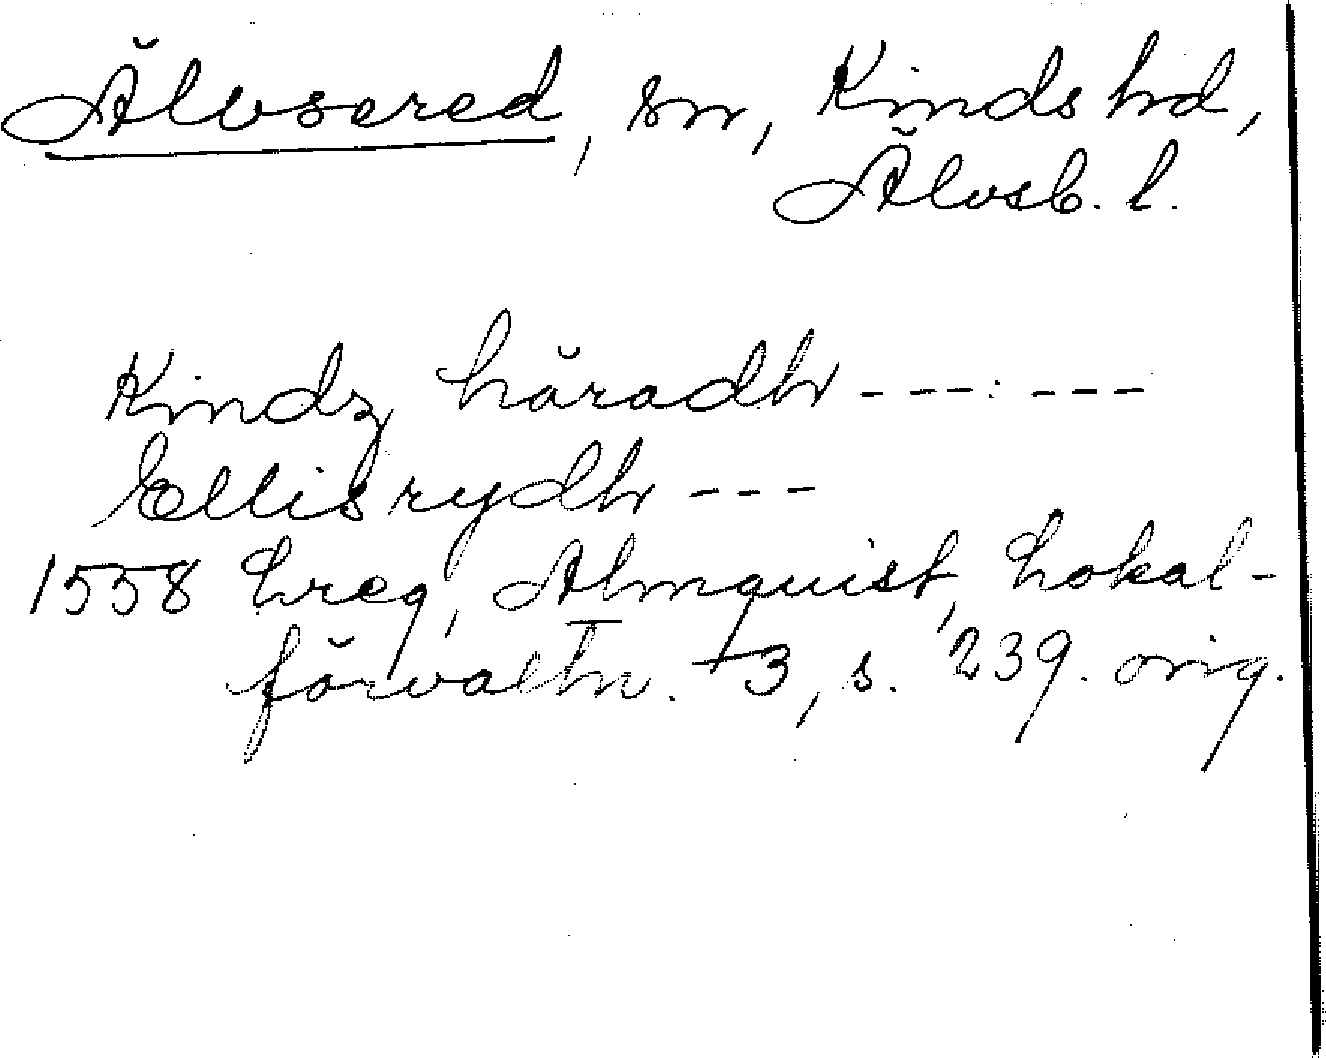 Älvsered, sn, Kinds hd,
Älvsb. l.
Kindz häradh ---:---
Ellisrydh ---
1558 Lreg, Almquist, Lokal-
förvaltn. I 3, s. 239. orig.